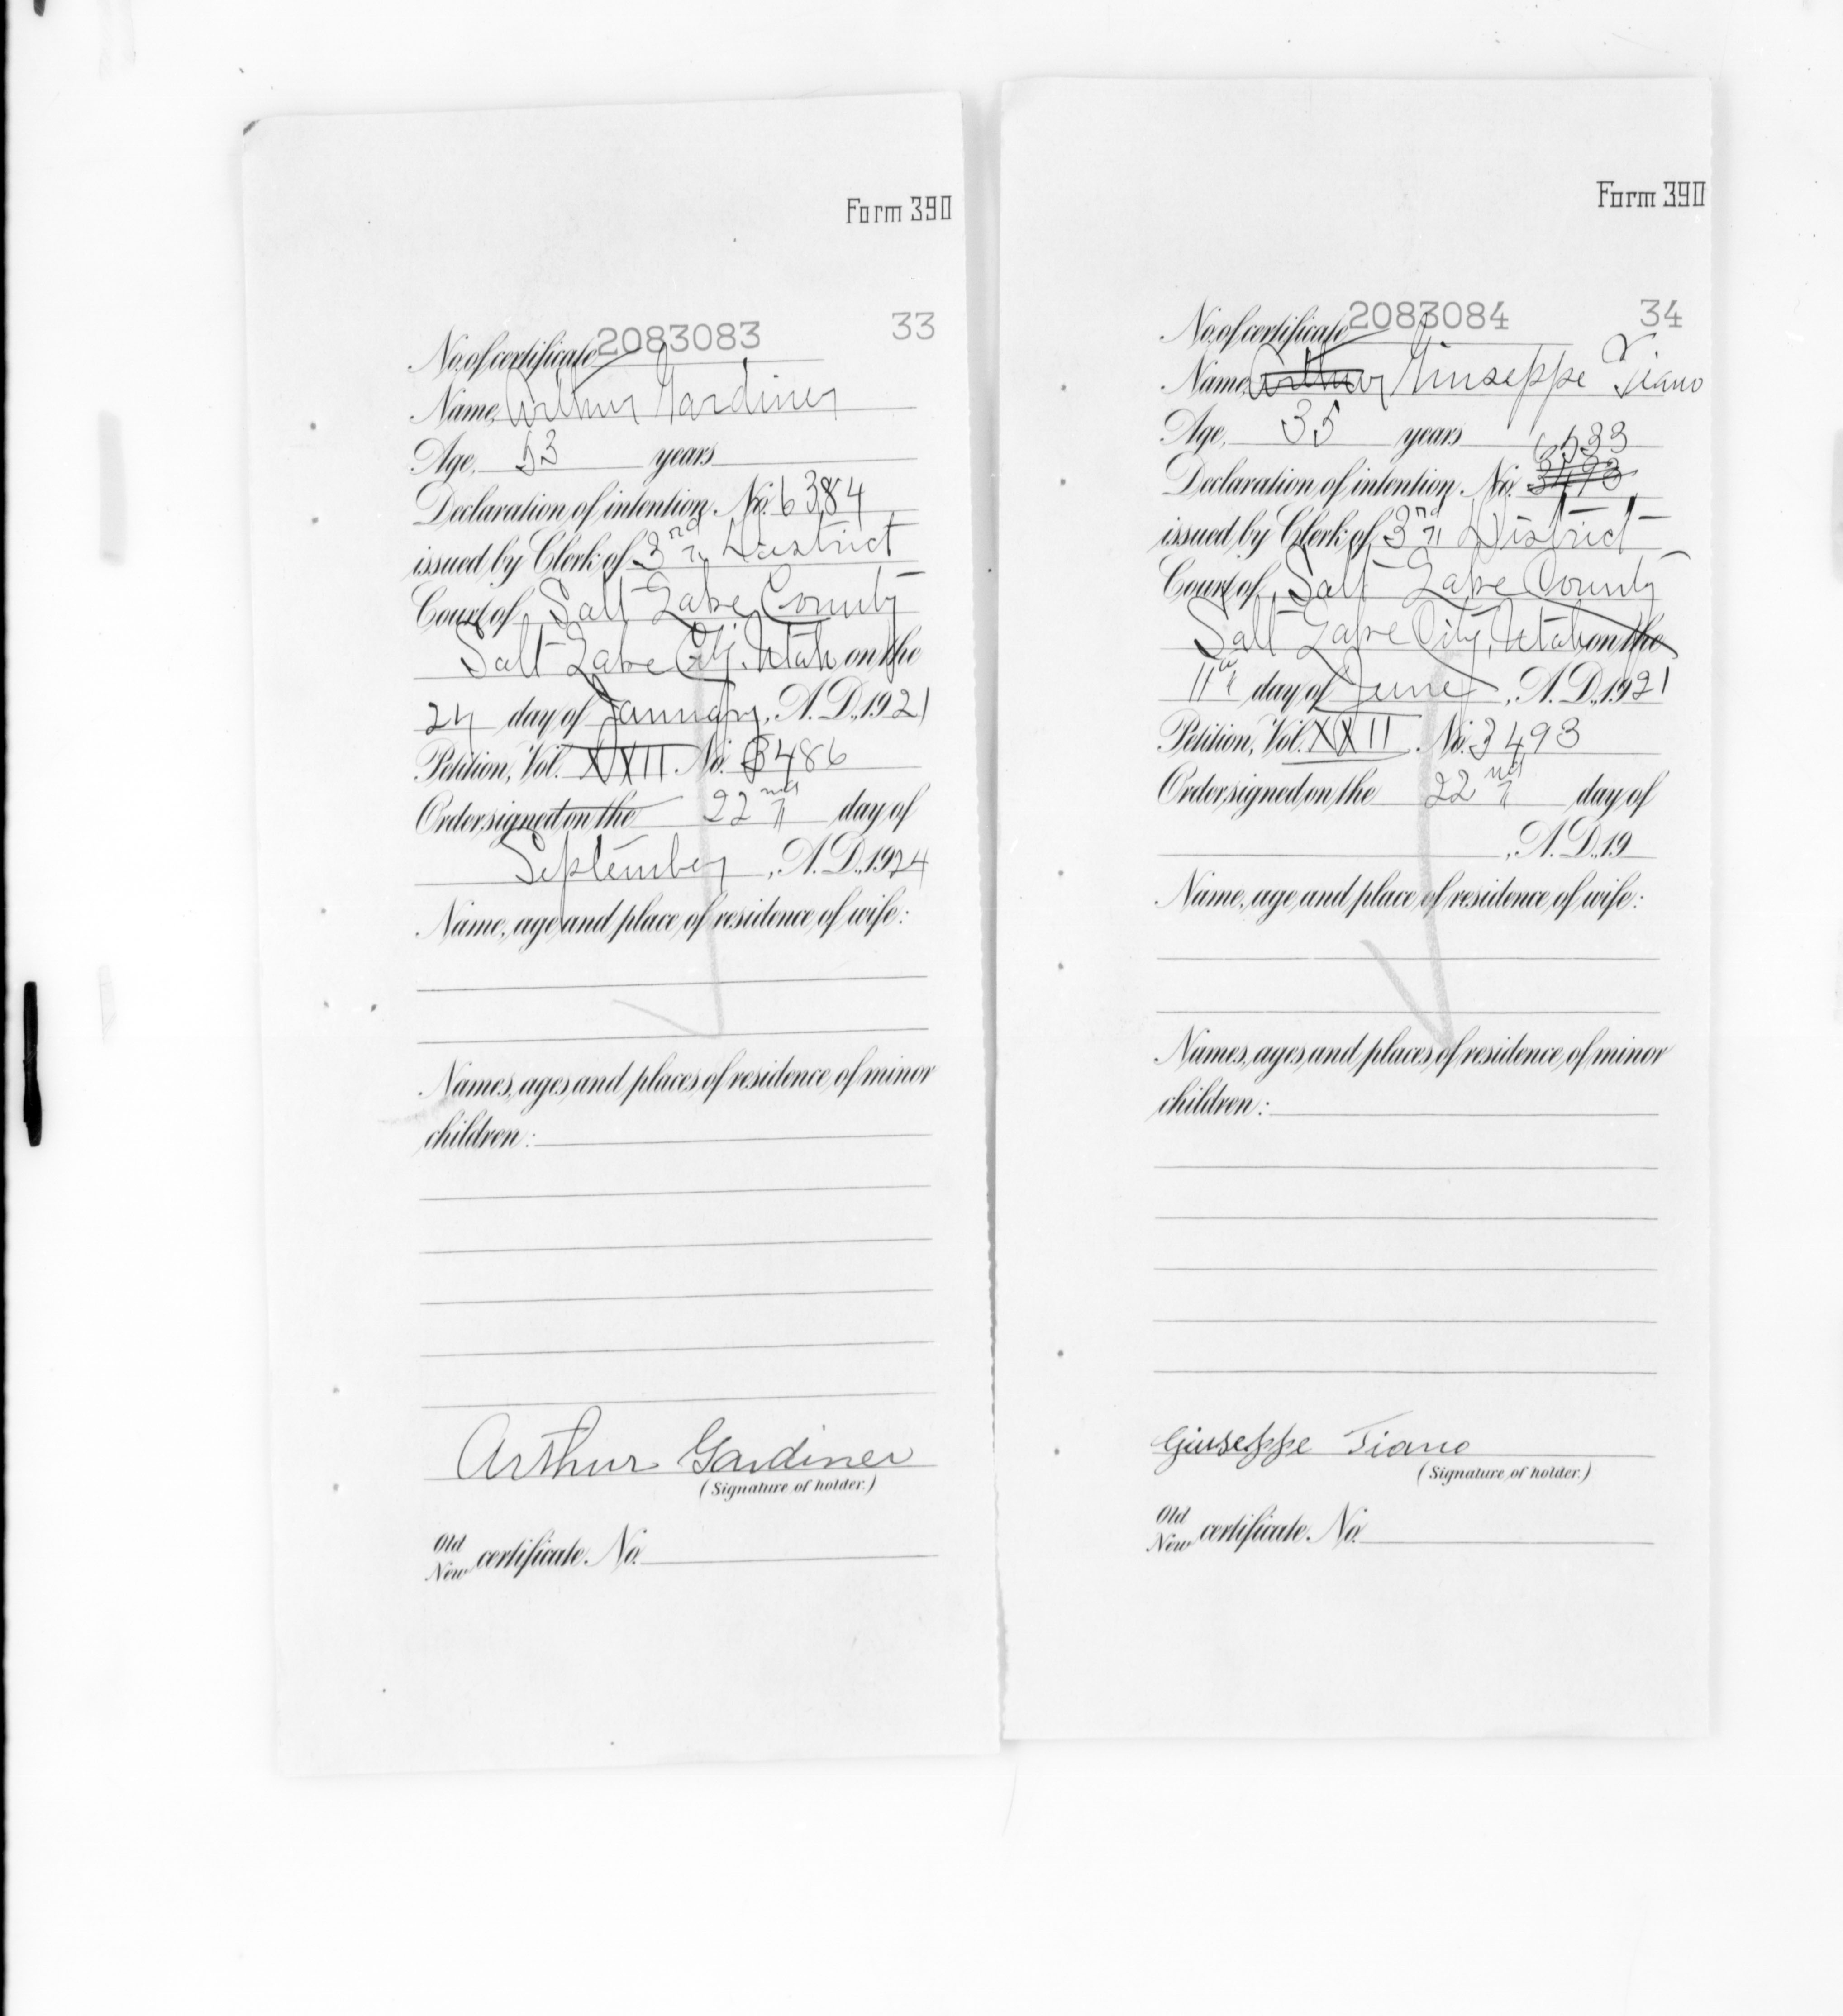 Form 390
33
No. of certificate 2083083
Name, Arthur Gardiner
Age, 53 years
Declaration of intention, No. 6384
issued by Clerk of 3rd District
Court of Salt Lake County
Salt Lake City, Utah on the
24 day of January, A. D., 1921
Petition, Vol. XXII No. 3486
Order signed on the 22nd day of
September, A. D., 1924
Name, age and place of residence of wife:
Names, ages and places of residence of minor
children:
Arthur Gardiner
(Signature of holder.)
Old
New certificate No.
Form 390
34
No. of certificate 2083084
Name, Arthur Giuseppe Tiano
Age, 35 years
6533
Declaration of intention, No. 3493
issued by Clerk of 3rd District
Court of Salt Lake County
Salt Lake City, Utah on the
11th day of June, A. D., 1921
Petition, Vol. XXII No. 3493
Order signed on the 22nd day of
, A. D., 19
Name, age and place of residence of wife:
Names, ages and places of residence of minor
children:
Giuseppe Tiano
(Signature of holder.)
Old
New certificate No.